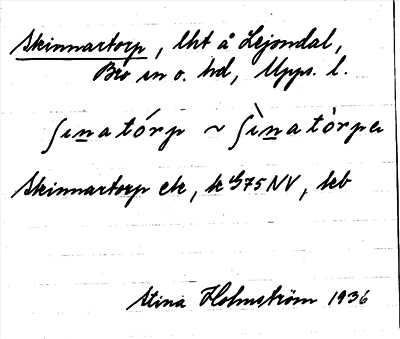 Skinnartorp, lht å Lejondal,
Bro sn o. hd, Upps. l.
ʃınatórp ~ ʃı̀natȯ́rpa
Skinnartorp ek, k G75 NV, kb
Stina Holmström 1936